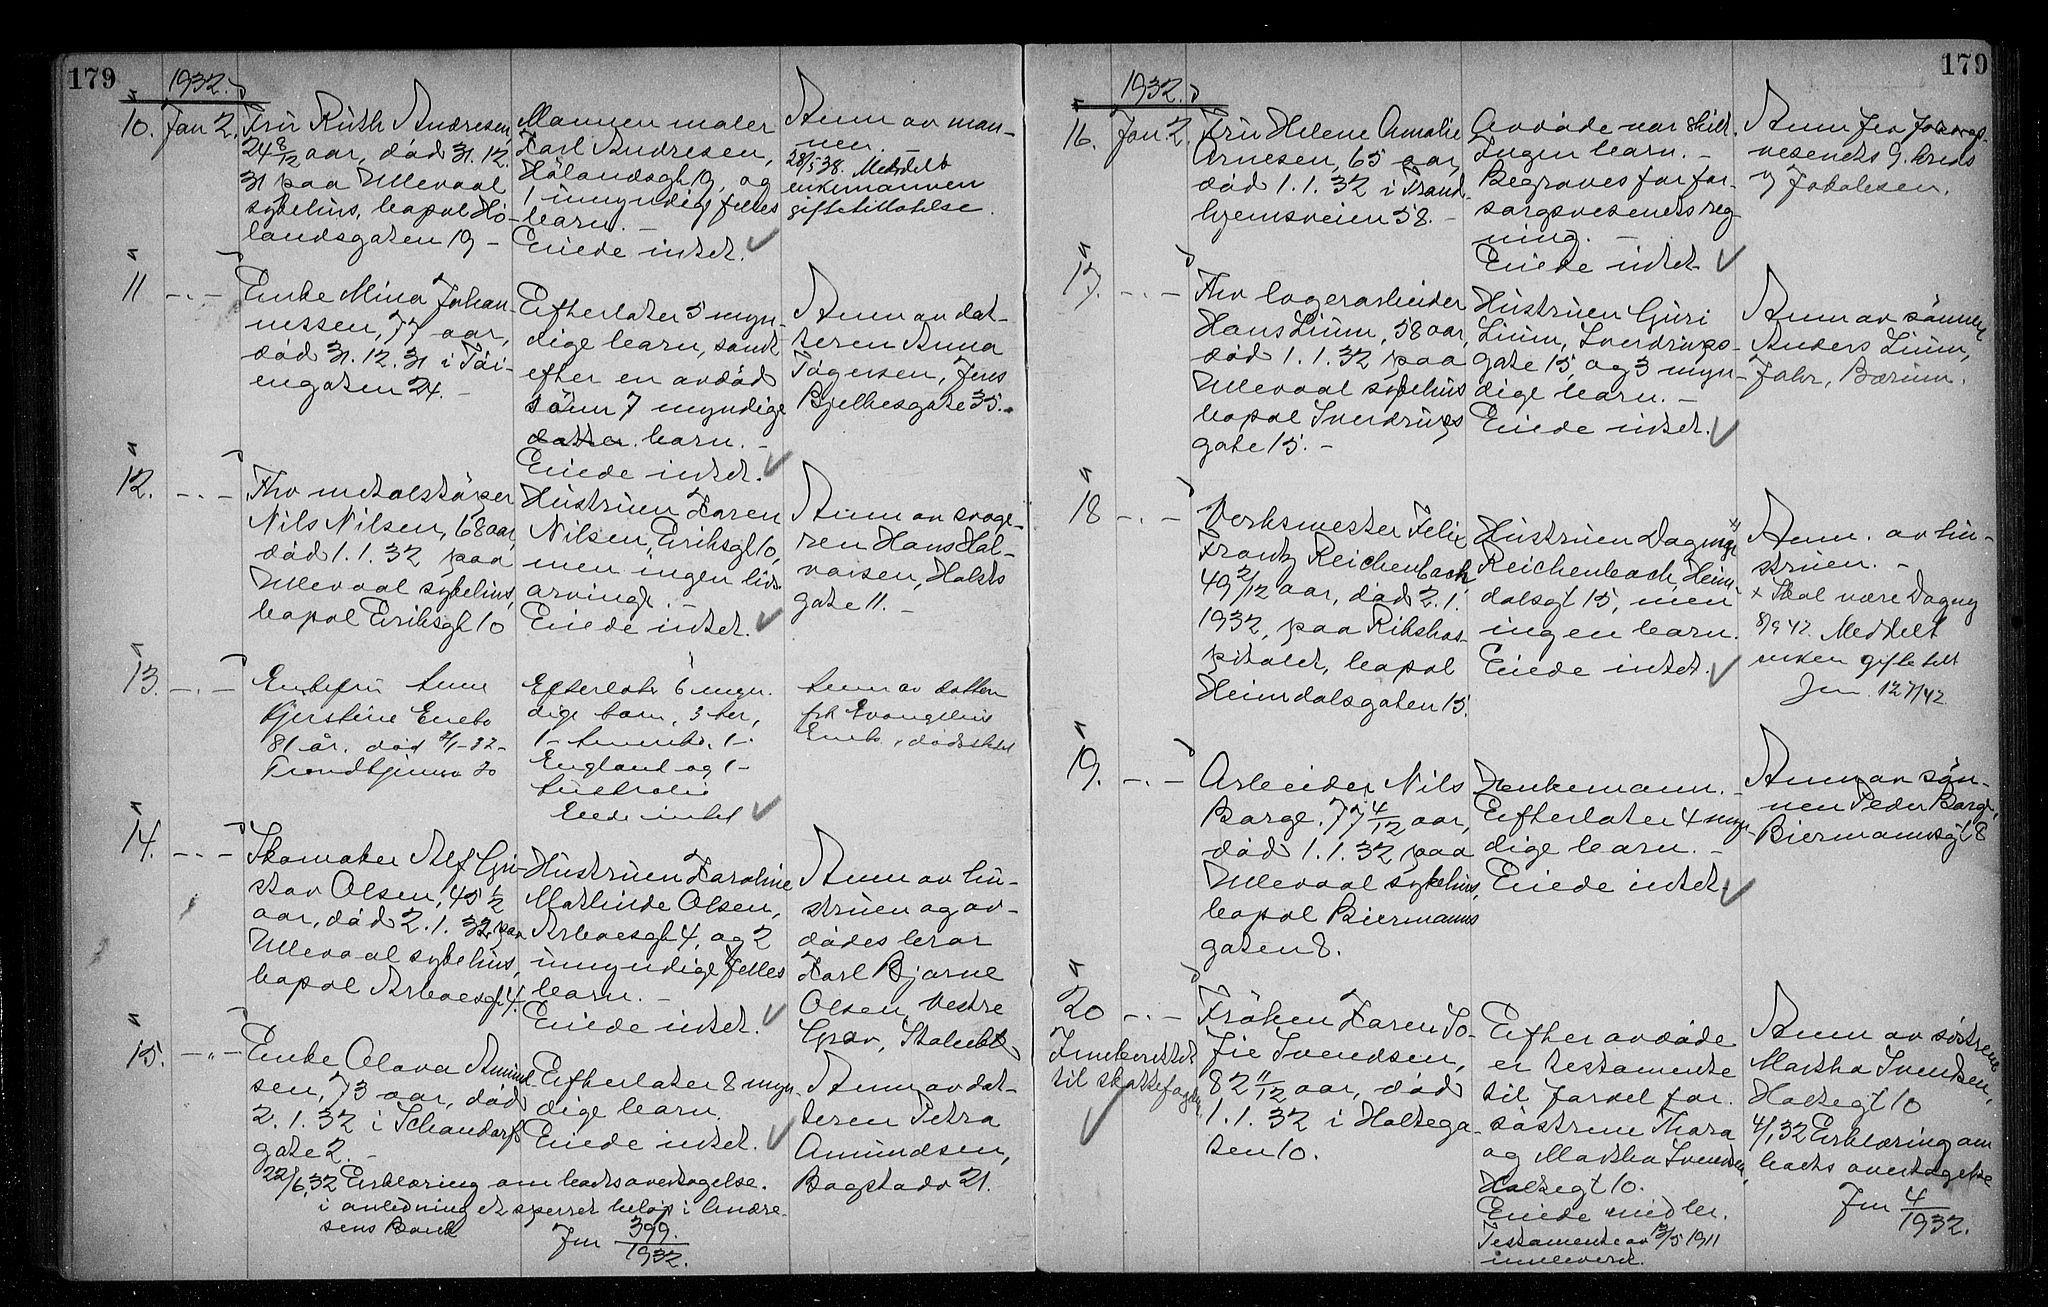 179
1932.
10. Jan 2. Fru Ruth Andresen,
24 8/12 aar, död 31.12.
31 paa Ullevaal
sykehus, bopæl Hö-
landsgaten 19 –
Mannen maler
Karl Andresen,
Hölandsgt 19, og
1 umyndig felles
barn. –
Eiede intet.
Anm av man-
nen. –
28/5 38. Meddelt
enkemannen
giftetillatelse.
11 -"- Enke Mina Johan-
nessen, 77 aar,
död 31.12.31 i Töi-
engaten 24. –
Efterlater 5 myn-
dige barn, samt
efter en avdöd
sönn 7 myndige
datter barn. –
Eiede intet.
Anm av dat-
teren Anna
Tögersen, Jens
Bjelkesgate 35.
12. -"- Fhv metalstöper
Nils Nilsen, 68 aar,
död 1.1.32 paa
Ullevaal sykehus,
bopæl Eriksgt 10
Hustruen Karen
Nilsen, Eriksgt 10,
men ingen livs
arving. –
Eiede intet.
Anm av svoge-
ren Hans Hal-
vorsen, Holsts
gate 11. –
13. -"- Enkefru Anne
Kjerstine Enebo
81 år. död 2/1-32-
Trondhjemsv 20
Efterlater 6 myn.
dige barn, 3 her,
1 - Amerika, 1 -
England og 1 -
Australia
Eiede intet
Anm av datter
frk Evangeline
Enebo, dödsstedet
14. -"- Skomaker Alf Gu-
stav Olsen, 45 1/2
aar, död 2.1.32 paa
Ullevaal sykehus,
bopæl Arboesgt 4.
Hustruen Karoline
Mathinde Olsen,
Arboesgt 4, og 2
umyndige felles
barn. –
Eiede intet.
Anm av hu-
struen og av-
dödes bror
Karl Bjarne
Olsen, Vestre
Grav, Stabekk
15. -"- Enke Olava Amund-
sen, 73 aar, död
2.1.32 i Schandorffs
gate 2. –
Efterlater 8 myn-
dige barn.
Eiede intet.
Anm av dat-
teren Petra
Amundsen,
Bogstadv 21.
22/6.32 Erklæring om boets overtagelse.
i anledning et sperret belöp i Andre-
sens Bank
Jnr 399.
1932.
179
1932.
16. Jan 2. Fru Helene Amalie
Arnesen, 65 aar,
död 1.1.32 i Trond-
hjemsveien 58. –
Avdöde var skilt.
Ingen barn. –
Begraves for for-
sorgsvesenets reg-
ning. –
Eiede intet
Anm fra forsorgs-
vesenets 9. kreds
v Jakobsen.
17. -"- Fhv lagerarbeider
Hans Lium, 58 aar,
död 1.1.32 paa
Ullevaal sykehus
bopæl Sverdrups
gate 15. –
Hustruen Guri
Lium, Sverdrups-
gate 15, og 3 myn-
dige barn. –
Eiede intet.
Anm av sönnen
Anders Lium,
Jahr, Bærum.
18 -"- Verksmester Felix
Frantz Reichenbach
49 2/12 aar, död 2.1.
1932, paa Rikshos-
pitalet, bopæl
Heimdalsgaten 15.
Hustruen Dagmar x)
Reichenbach, Heim-
dalsgt 15, men
ingen barn.
Eiede intet.
Anm. av hu-
struen. –
x Skal være Dagny
8/9 42. Meddelt
enken gifte till
Jnr. 127/42
19. -"- Arbeider Nils
Borge. 77 4/12 aar,
död 1.1.32 paa
Ullevaal sykehus,
bopæl Biermanns
gaten 8.
Enkemann. –
Efterlater 4 myn-
dige barn. –
Eiede intet.
Anm av sön-
nen Peder Borge,
Biermannsgt 8
20 -"- Fröken Karen So-
fie Svendsen,
82 11/12 aar, död
1.1.32 i Holtega-
ten 10.
Innberettet
til skattefogden,
Efter avdöde
er testamente
til fordel for.
söstrene Thora
og Martha Svendsen,
Holtegt 10.
Eiede midler.
Testamente av 13/5 1911
innlevert.
Anm av söstrene
Martha Svendsen,
Holtegt 10
4/1 32 Erklæring om
boets overtagelse
Jnr 4
1932.